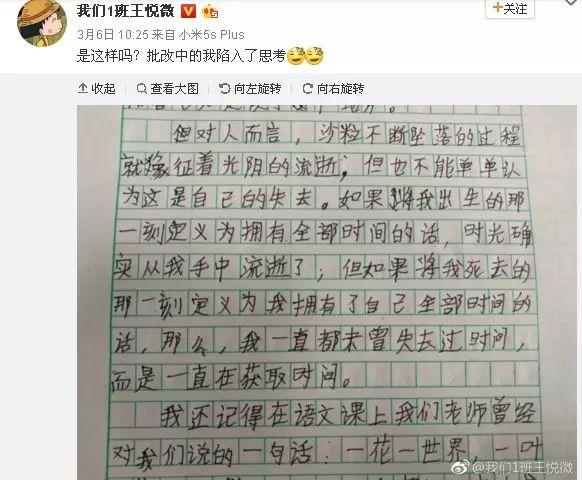 我们1班王悦微
+关注
3月6日 10:25 来自 小米5s Plus
是这样吗？批改中的我陷入了思考
收起 查看大图 向左旋转 向右旋转
但对人而言，沙粒不断坠落的过程
就像征着光阴的流逝；但也不能单单认
为这是自己的失去。如果将我出生的那
一刻定义为拥有全部时间的话，时光确
实从我手中流逝了；但如果将我死去的
那一刻定义为我拥有了自己全部时间的
话，那么，我一直都未曾失去过时间，
而是一直在获取时间。
我还记得在语文课上我们老师曾经
对我们说的一句话：一花一世界，一叶
@我们1班王悦微